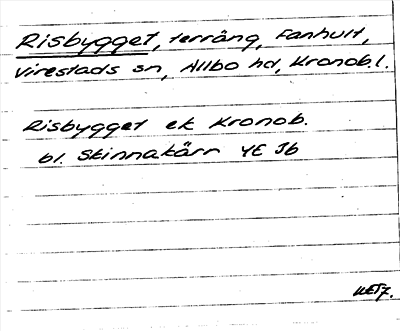 Risbygget, terräng, Fanhult,
Virestads sn, Allbo hd, Kronob.l.
Risbygget ek Kronob.
bl. Skinnakärn 4E Jb